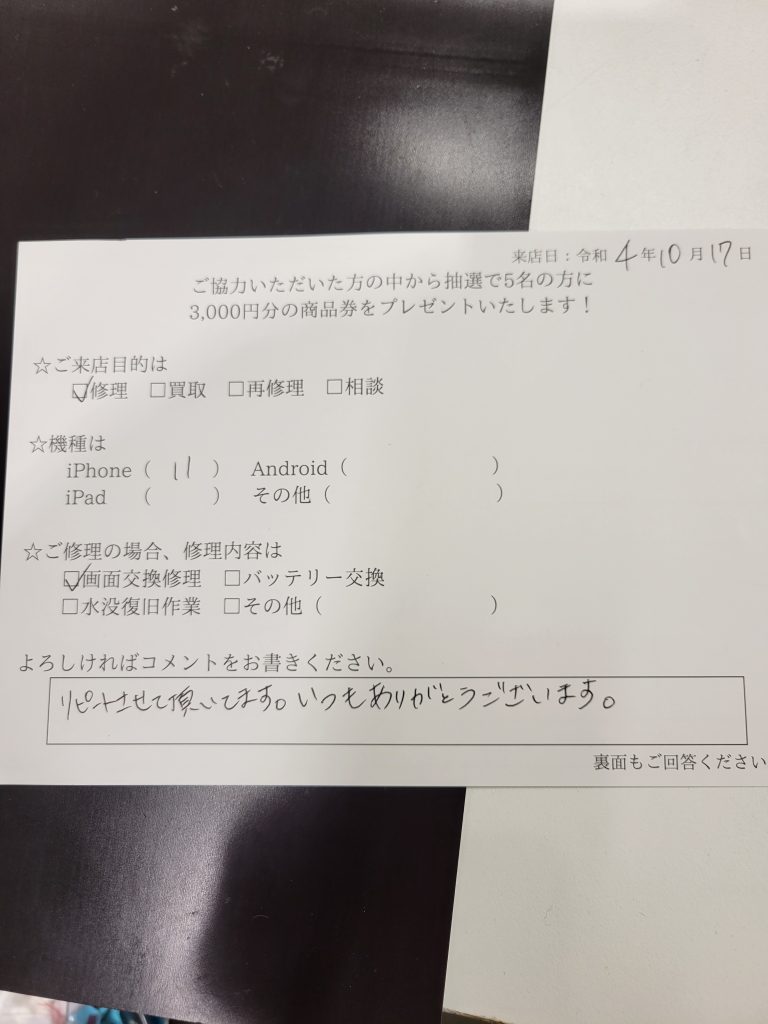 来店日：令和 4年10月17日
ご協力いただいた方の中から抽選で5名の方に
3,000円分の商品券をプレゼントいたします！
☆ご来店目的は
☑修理 □買取 □再修理 □相談
☆機種は
iPhone（ 11 ） Android（ ）
iPad （ ） その他（ ）
☆ご修理の場合、修理内容は
☑画面交換修理 □バッテリー交換
□水没復旧作業 □その他（ ）
よろしければコメントをお書きください。
リピートさせて頂いてます。いつもありがとうございます。
裏面もご回答ください